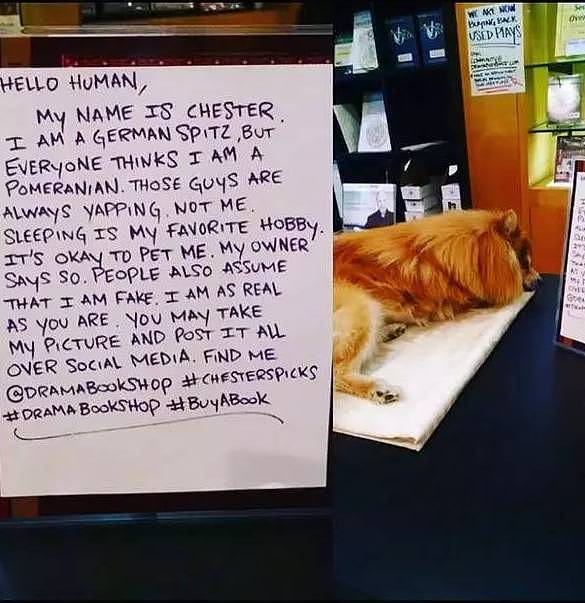 HELLO HUMAN,
MY NAME IS CHESTER.
I AM A GERMAN SPITZ, BUT
EVERYONE THINKS I AM A
POMERANIAN. THOSE GUYS ARE
ALWAYS YAPPING. NOT ME.
SLEEPING IS MY FAVORITE HOBBY.
IT'S OKAY TO PET ME. MY OWNER
SAYS SO. PEOPLE ALSO ASSUME
THAT I AM FAKE. I AM AS REAL
AS YOU ARE. YOU MAY TAKE
MY PICTURE AND POST IT ALL
OVER SOCIAL MEDIA. FIND ME
@DRAMABOOKSHOP #CHESTERSPICKS
#DRAMABOOKSHOP #BUYABOOK
WE ARE NOW
BUYING BACK
USED PLAYS